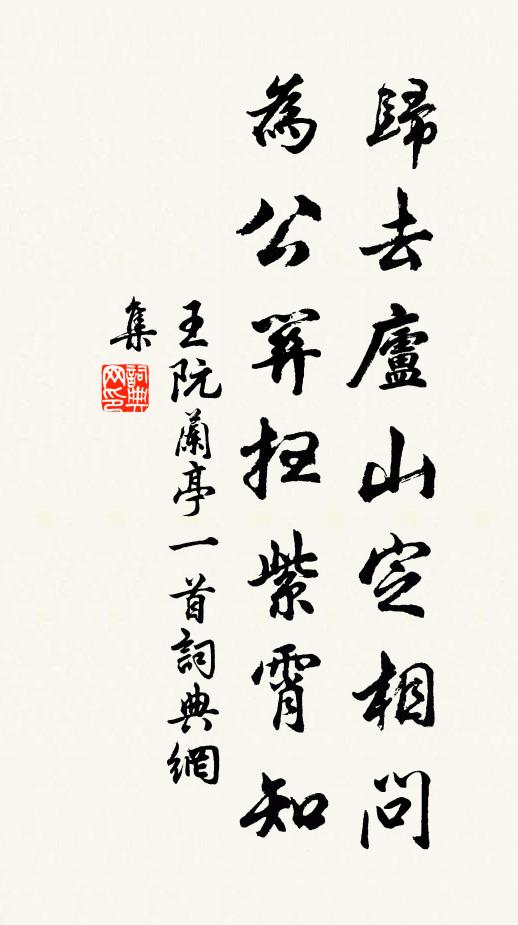 歸去廬山定相問
為公紫霄知
王阮蘭亭一首詞典網
集
詞典网印